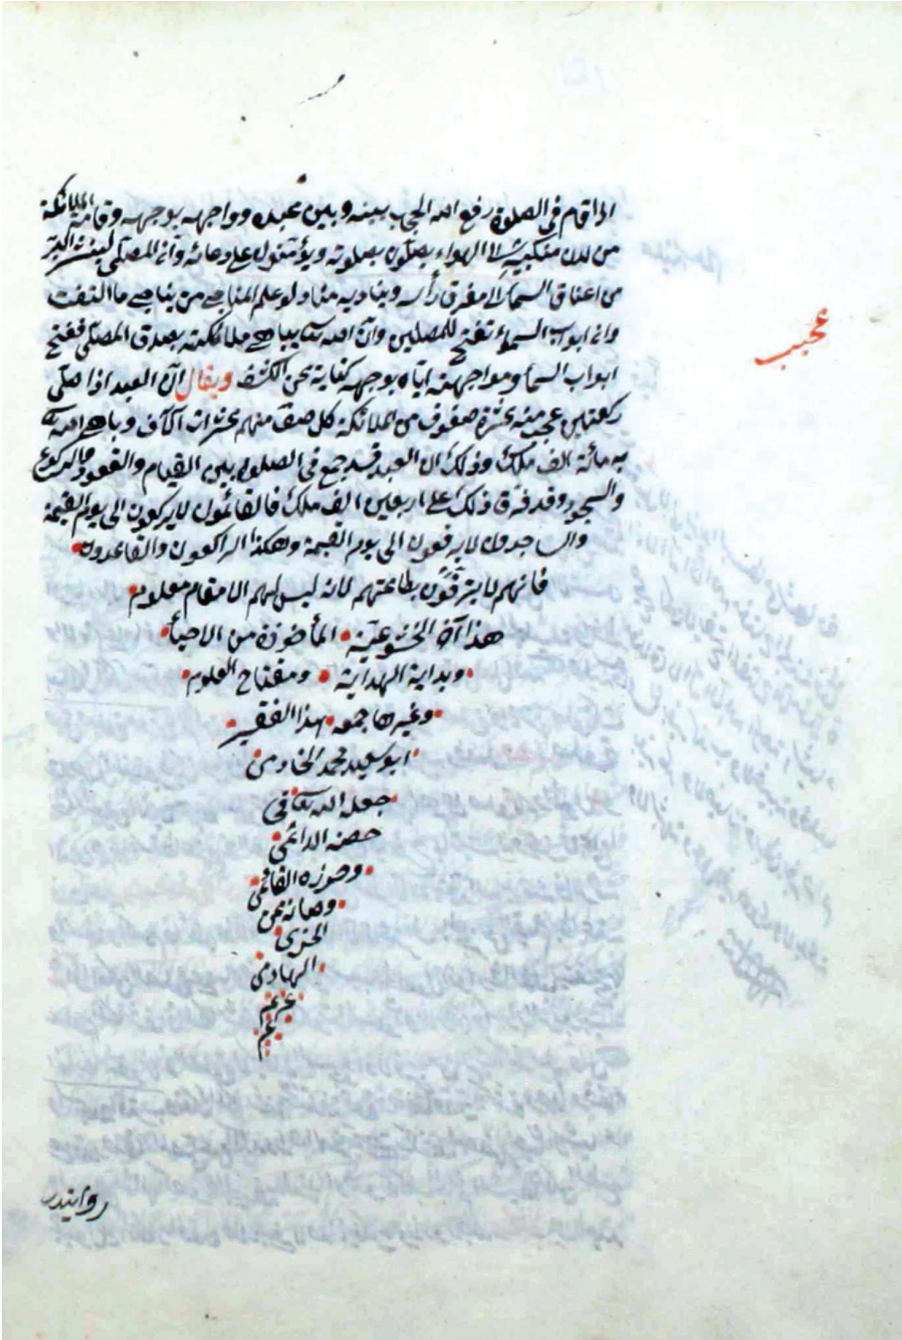 اذا قام في الصلوة رفع الله الحجاب بينه وبين عبده وواجهه بوجهه وقامت الملائكة
من لدن منكبيه الى الهواء يصلون بصلوته ويؤمنون على دعائه وان المصلى لينثر البر
من اعناق السماء الى مفرق رأسه ويناديه مناد لو علم المناجى من يناجى ما التفت
وان ابواب السماء تفتح للمصلين وان الله تعا يباهى ملائكته بصدق المصلى ففتح
ابواب السماء ومواجهته اياه بوجهه كناية عن الكشف ويقال ان العبد اذا صلى
ركعتين عجب منه عشرة صفوف من الملائكة كل صف منهم عشرات آلآف وباهى الله
به مائة الف ملك وذلك ان العبد قد جمع في الصلوة بين القيام والقعود والركوع
والسجود وقد فرق ذلك على اربعين الف ملك فالقائمون لا يركعون الى يوم القيمة
والساجدون لا يرفعون الى يوم القيمة وهكذا الراكعون والقاعدون
فانهم لا يترقون بطاعتهم لانه ليس لهم الا مقام معلوم
هذا آخر الخشوعية المأخوذة من الاحياء
وبداية الهداية ومفتاح العلوم
وغيرها جمعه هذا الفقير
ابو سعيد محمد الخادمى
جعله الله تعا في
حصنه الدائمى
وحرزه القائمى
وصانه عن
الخزى
الهادى
عجيب